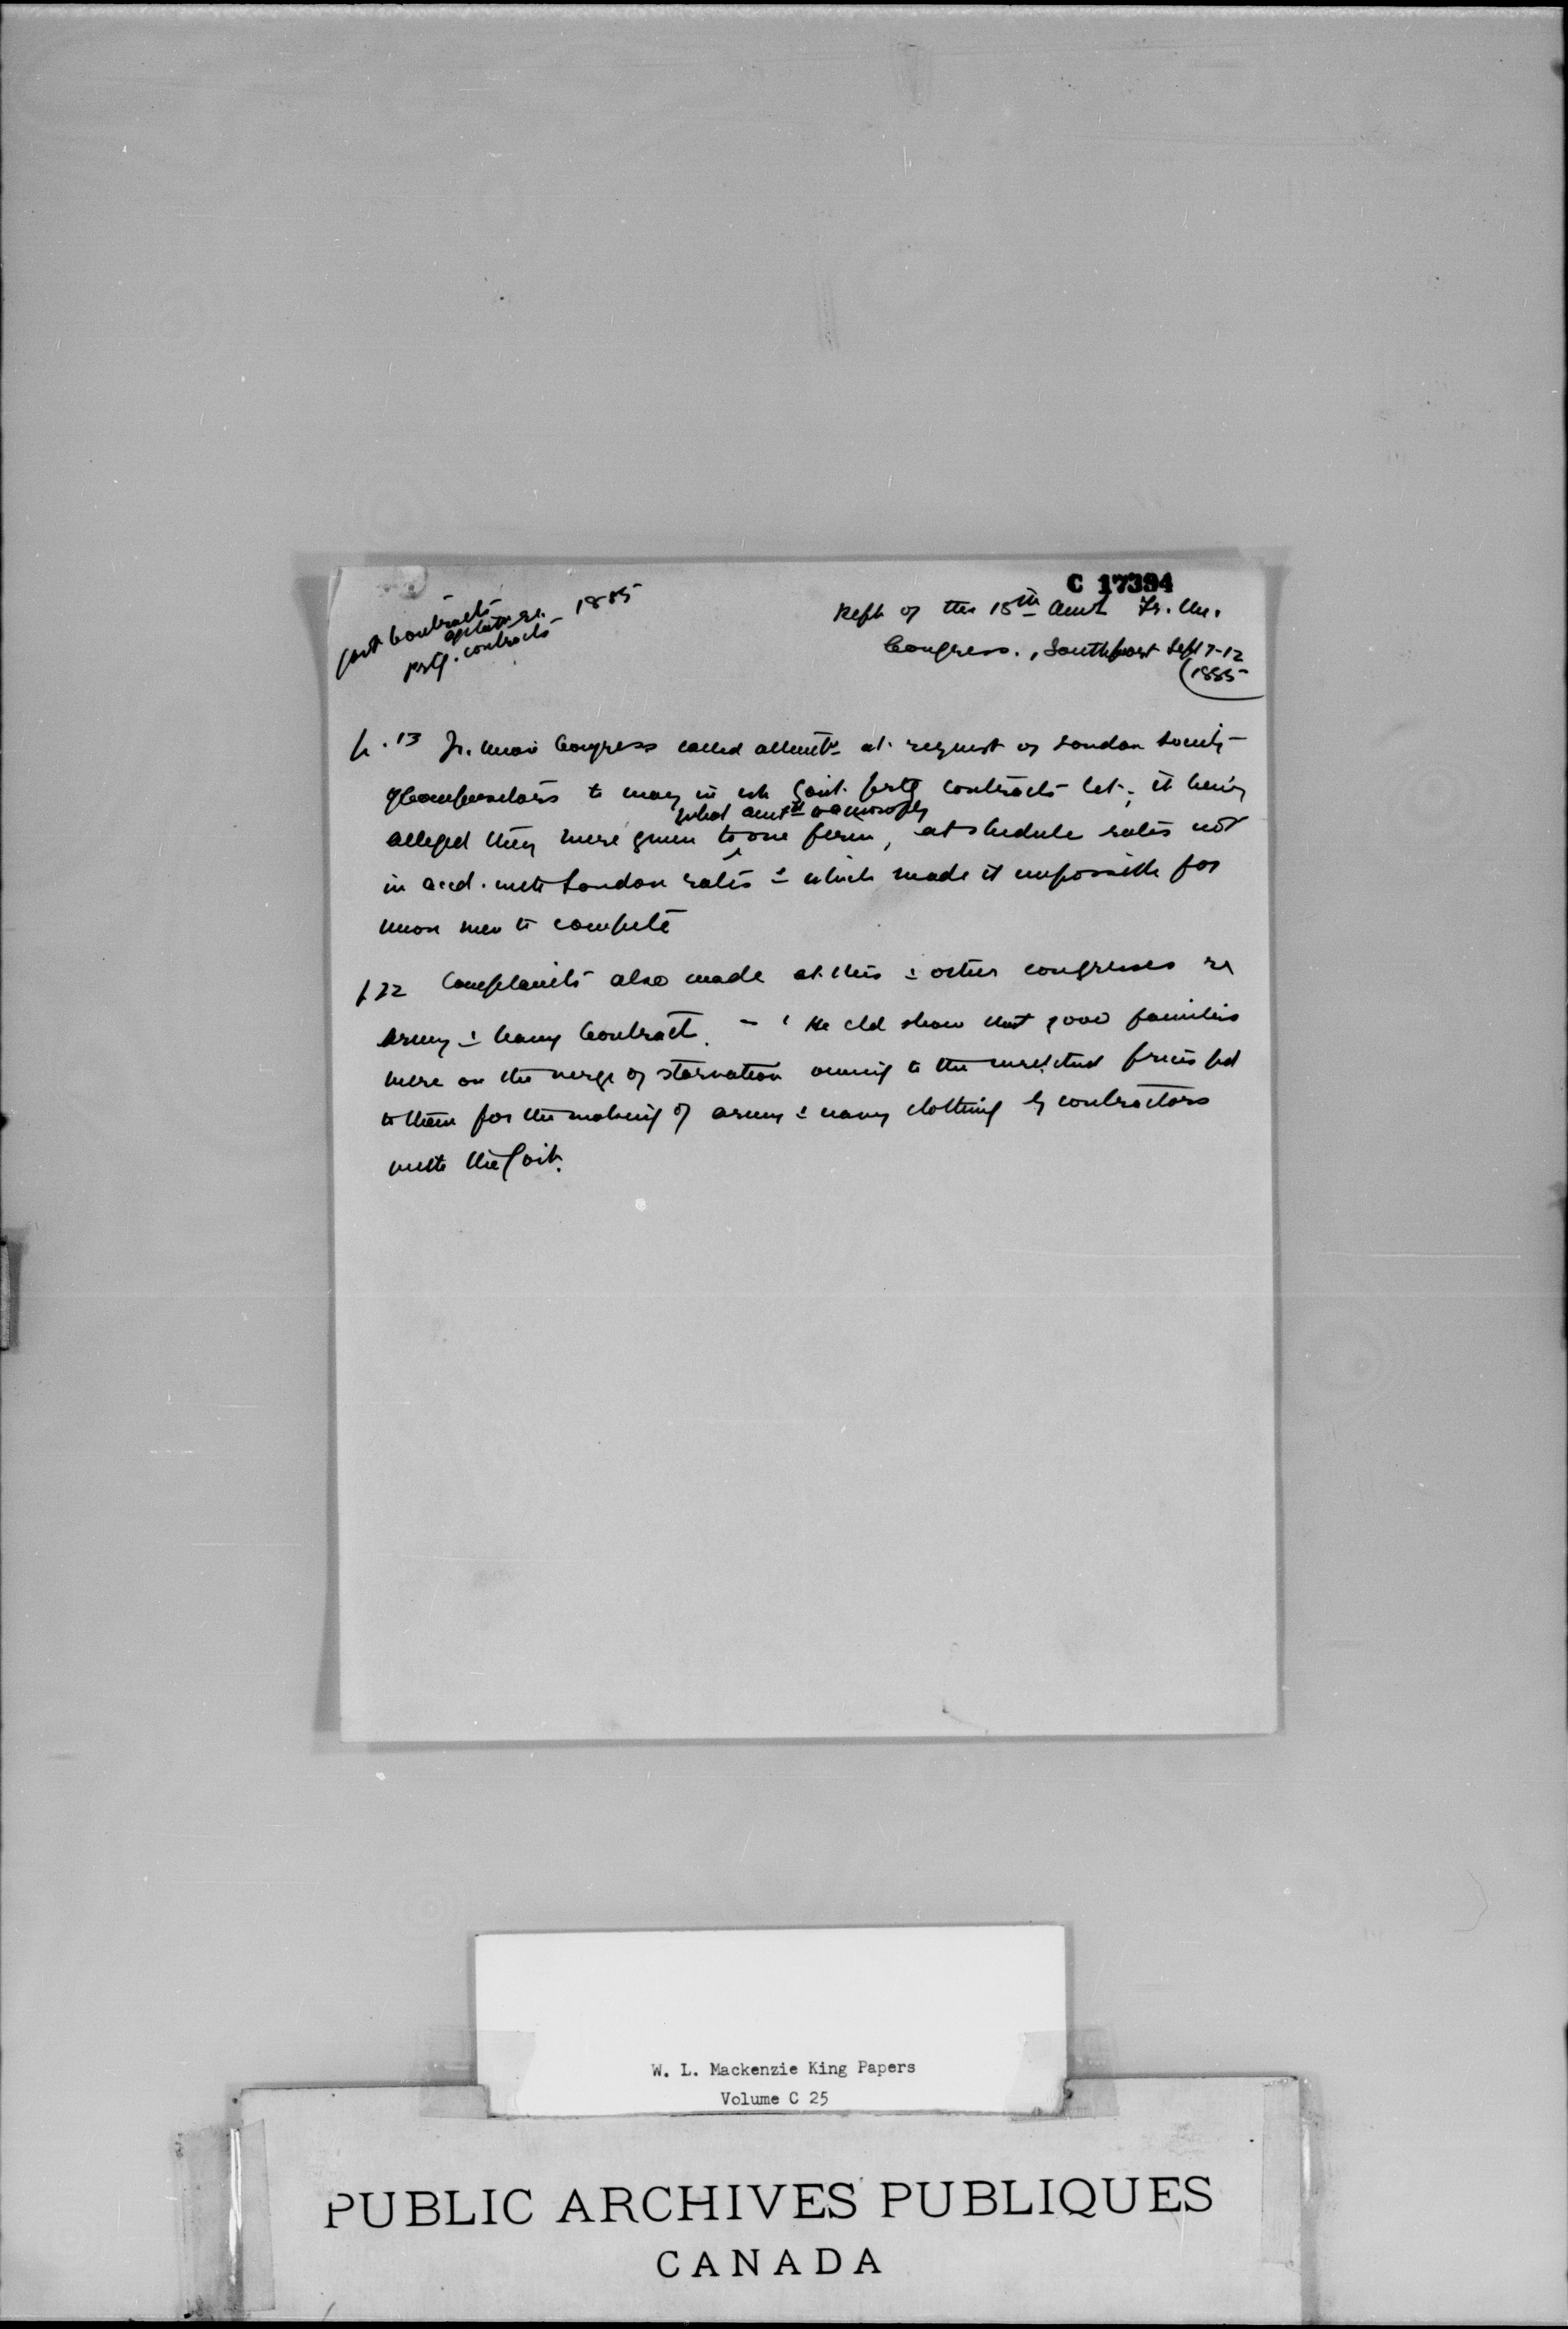 C 17394
Govt Contracts
agitatn re. 1885
prtg. contracts
Rept of the 18th Annl Tr. Un.
Congress., Southport Sept 7-12
(1885
p. 13 Tr. Union Congress called attentn at request of London Society
of Compositors to way in wh Govt. prtg contracts let; it being
what amtd to a monopoly
alleged they were given to one firm, at schedule rates not
in accd. with London rates & which made it impossible for
union men to compete
p 22 Complaints also made at this & other congresses re
Army & Navy Contract. - ' He cld show that 9000 families
were on the verge of starvation owing to the wretched prices pd
to them for the making of army & navy clothing by contractors
with the Govt.
W. L. Mackenzie King Papers
Volume C 25
PUBLIC ARCHIVES PUBLIQUES
CANADA